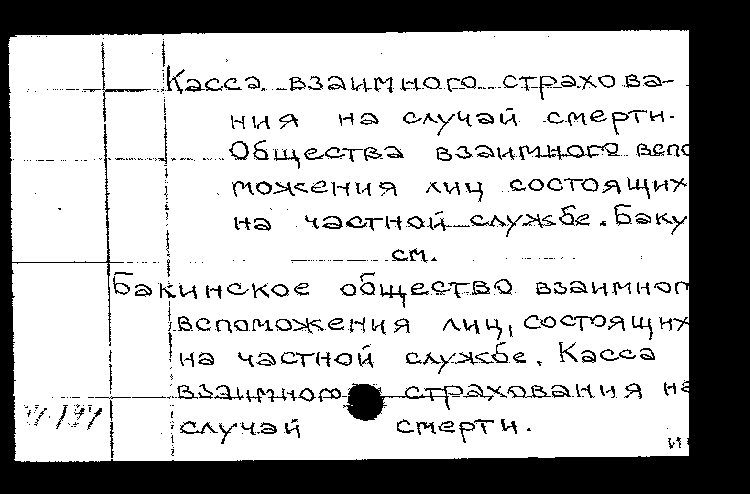 Касса взаимного страхова-
ния на случай смерти.
Общества взаимного вспо
можения лиц состоящих
на частной службе. Баку
см.
Бакинское общество взаимног
вспоможения лиц, состоящих
на частной службе. Касса
взаимного страхования на
случай смерти.